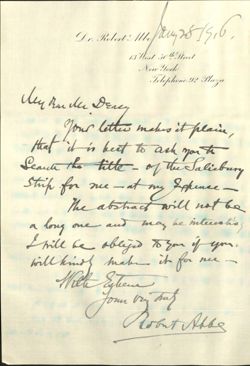 Dr. Robert Abbe
13 West 50th Street
New York
Telephone 92 Plaza
My dear Mr Deasy
Your letter makes it plain,
that it is best to ask you to
Search the title - of the Salisbury
Strip for me - at my Expense -
The abstract will not be
a long one and may be interesting
I will be obliged to you if you
will kindly make it for me -
With Esteem
Yours very truly
Robert Abbe